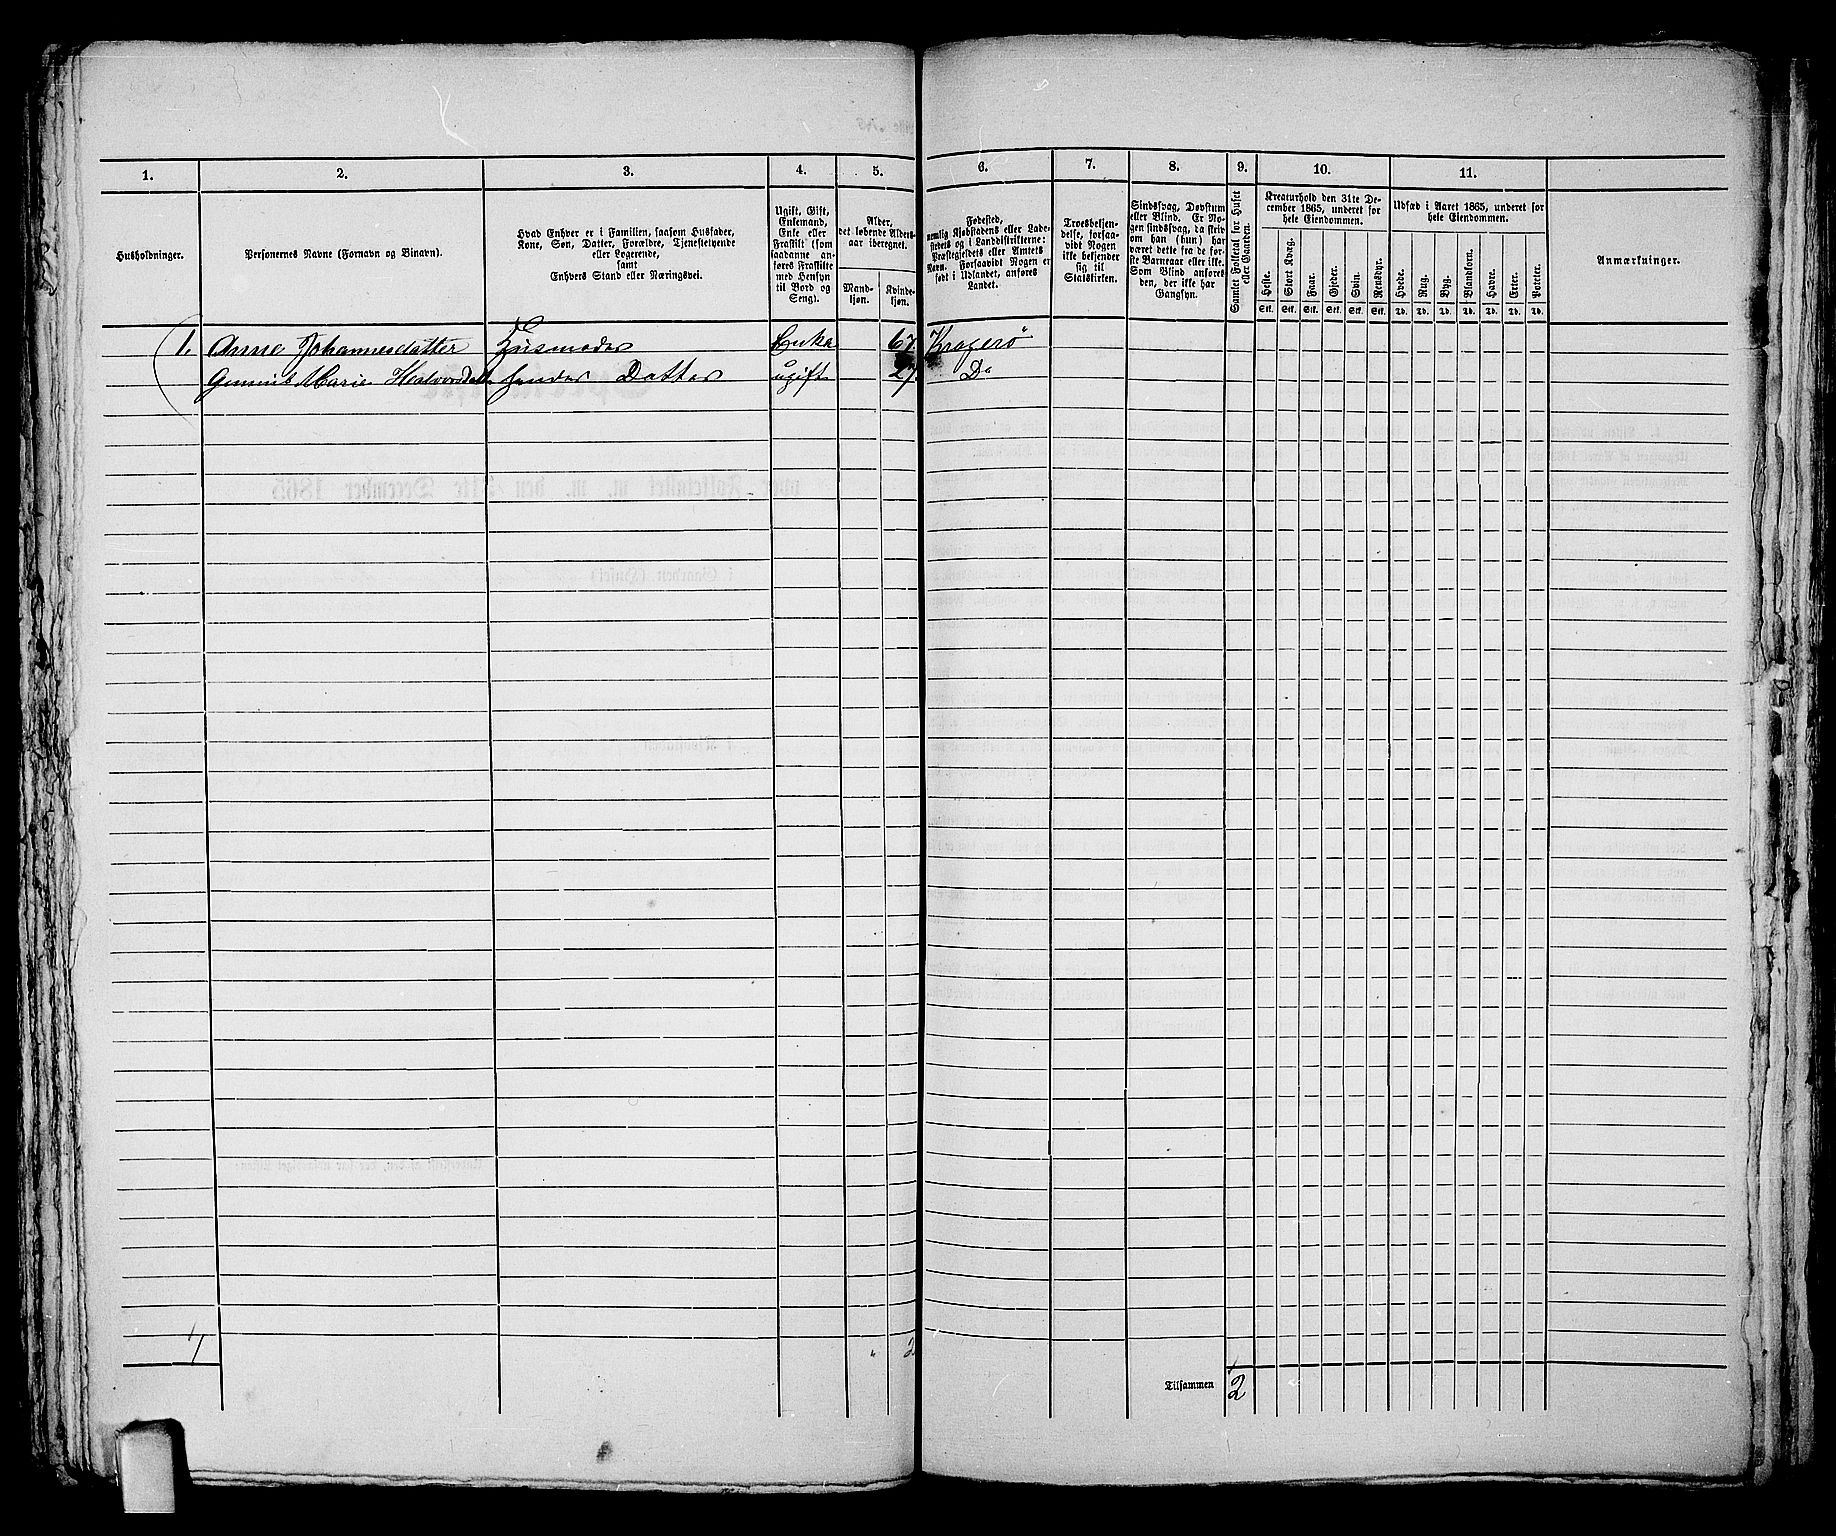 1. 2. 3. 4. 5. 6. 7. 8. 9. 10. 11.
Husholdninger.
Personernes Navne (Fornavn og Binavn).
Hvad Enhver er i Familien, saasom Husfader,
Kone, Søn, Datter, Forældre, Tjenestetyende
eller Logerende,
samt
Enhvers Stand eller Næringsvei.
Ugift, Gift,
Enkemand,
Enke eller
Fraskilt (som
saadanne an-
føres Fraskilte
med Hensyn
til Bord og
Seng).
Alder,
det løbende Alders-
aar iberegnet.
Mand-
kjøn.
Kvinde-
kjøn.
Fødested,
nemlig Kjøbstadens eller Lade-
stedets og i Landdistrikterne:
Præstegjeldets eller Amtets
Navn. Forsaavidt Nogen er
født i Udlandet, anføres
Landet.
Troesbekjen-
delse, forsaa-
vidt Nogen
ikke bekjender
sig til
Statskirken.
Sindssvag, Døvstum
eller Blind. Er No-
gen sindssvag, da skriv
om han (hun) har
været dette fra de før-
ste Barneaar eller ikke.
Som Blind anføres
den, der ikke har
Gangsyn.
Samlet Folketal for Huset
eller Gaarden.
Kreaturhold den 31te De-
cember 1865, underet for
hele Eiendommen.
Heste. Stort Kvæg. Faar. Gjeder. Svin. Rensdyr.
Stk. Stk. Stk. Stk. Stk. Stk.
Udsæd i Aaret 1865, underet for
hele Eiendommen.
Hvede. Rug. Byg. Blandkorn. Havre. Erter. Poteter.
Td. Td. Td. Td. Td. Td. Td.
Anmærkninger.
1. Anne Johannesdatter Husmoder Enke 67. Kragerø
Marie Halvorsdatt hendes Datter ugift 27. Do
1 " 2
Tilsammen 2